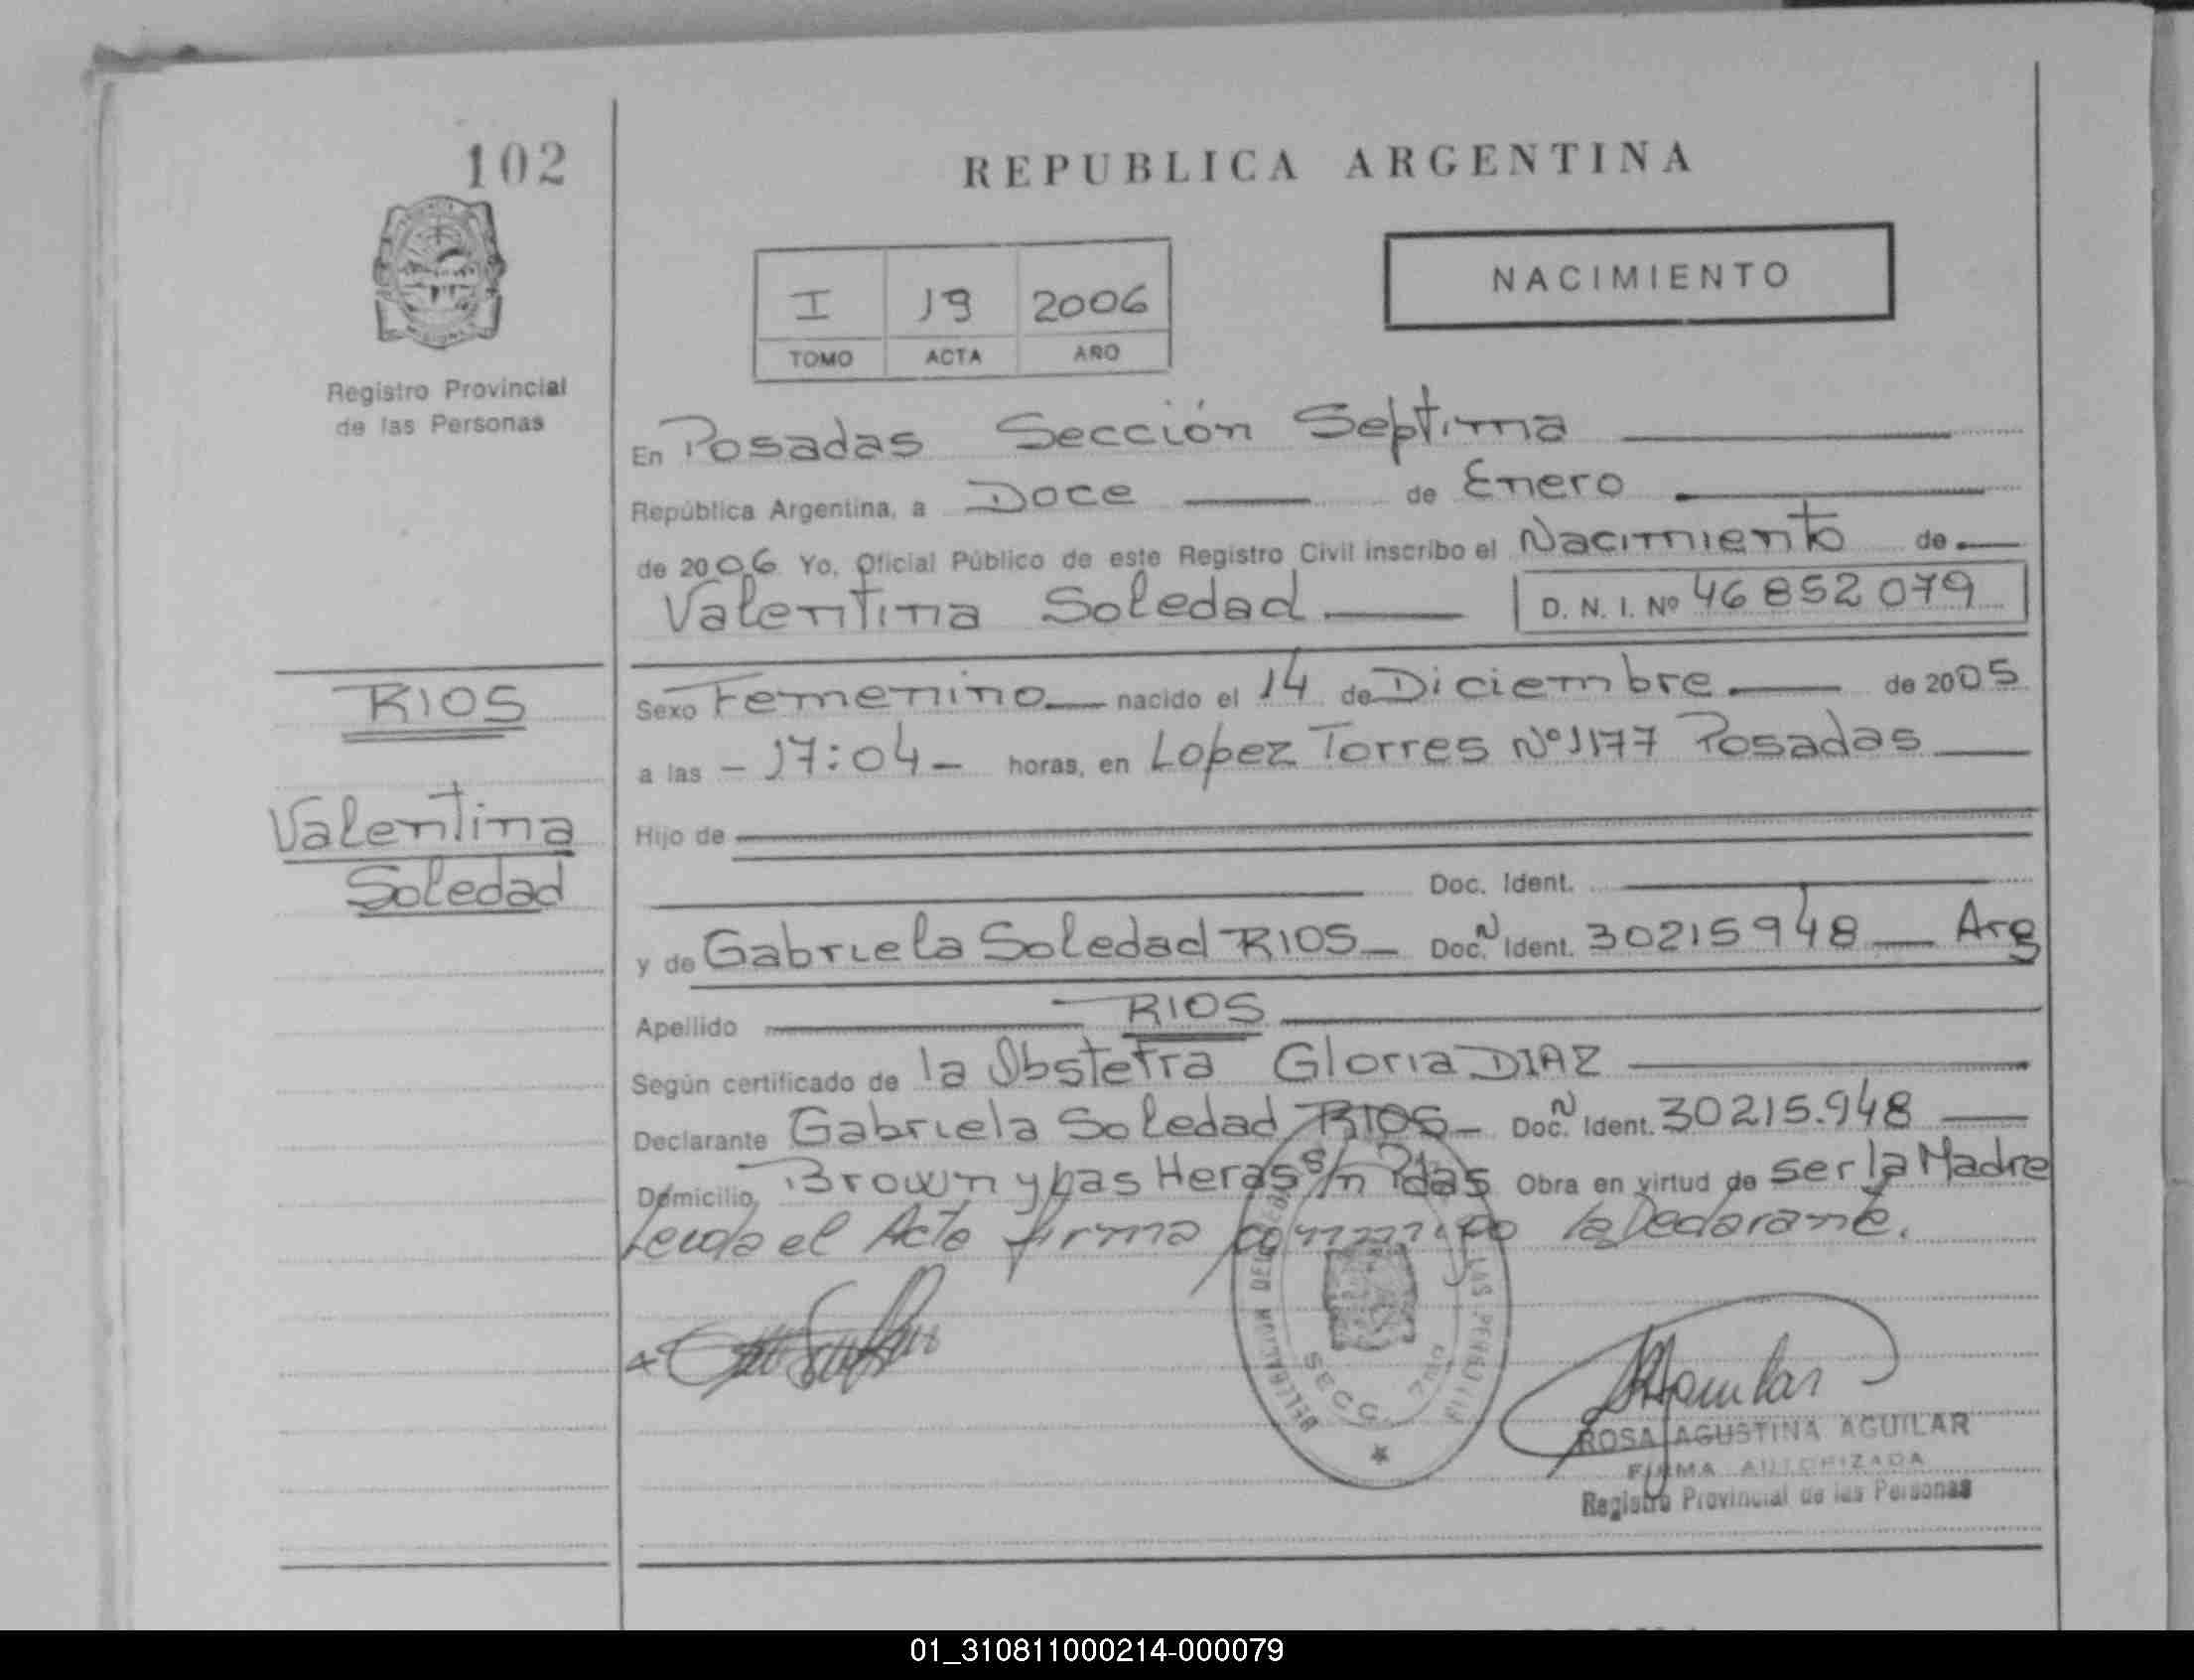 102
REPUBLICA ARGENTINA
NACIMIENTO
I 19 2006
TOMO ACTA AÑO
Registro Provincial
de las Personas
En Posadas Sección Septima
República Argentina, a Doce de Enero
de 2006 Yo, Oficial Público de este Registro Civil inscribo el Nacimiento de
Valentina Soledad D. N. I. Nº 46 852 079
RIOS
Valentina
Soledad
Sexo Femenino nacido el 14 de Diciembre de 2005
a las - 17:04 - horas, en Lopez Torres Nº 1177 Posadas
Hijo de
Doc. Ident.
y de Gabriela Soledad RIOS - Doc. N Ident. 30215948 Arg
Apellido RIOS
Según certificado de la Obstetra Gloria DIAZ
Declarante Gabriela Soledad RIOS - Doc. N Ident. 30215.948
Domicilio Brown y Las Heras s/n Pdas Obra en virtud de ser la Madre
Leida el Acta firma conmigo la Declarante.
DE LAS PERSONAS
ROSA AGUSTINA AGUILAR
FIRMA AUTORIZADA
Registro Provincial de las Personas
01_310811000214-000079